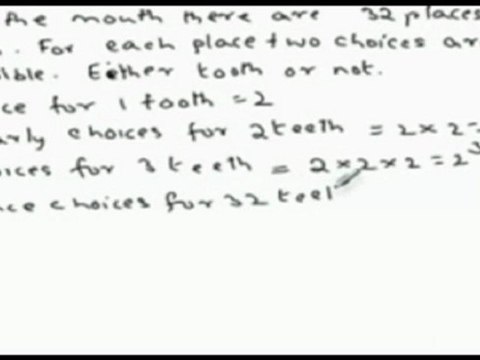 the mouth there are 32 places
. For each place two choices ar
sible. Either tooth or not.
ce for 1 tooth = 2
arly choices for 2 teeth = 2 × 2 =
oices for 3 teeth = 2 × 2 × 2 = 2³
nce choices for 32 teet